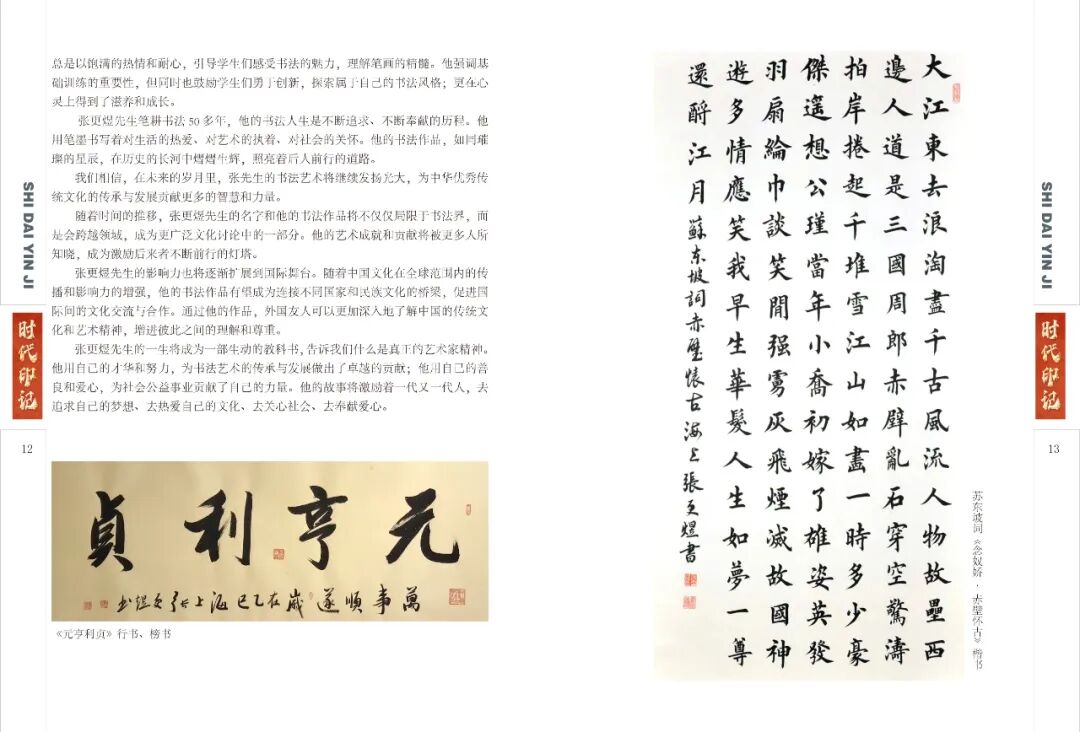 总是以饱满的热情和耐心，引导学生们感受书法的魅力，理解笔画的精髓。他强调基
础训练的重要性，但同时也鼓励学生们勇于创新，探索属于自己的书法风格；更在心
灵上得到了滋养和成长。
张更煜先生笔耕书法 50 多年，他的书法人生是不断追求、不断奉献的历程。他
用笔墨书写着对生活的热爱、对艺术的执着、对社会的关怀。他的书法作品，如同璀
璨的星辰，在历史的长河中熠熠生辉，照亮着后人前行的道路。
我们相信，在未来的岁月里，张先生的书法艺术将继续发扬光大，为中华优秀传
统文化的传承与发展贡献更多的智慧和力量。
随着时间的推移，张更煜先生的名字和他的书法作品将不仅仅局限于书法界，而
是会跨越领域，成为更广泛文化讨论中的一部分。他的艺术成就和贡献将被更多人所
知晓，成为激励后来者不断前行的灯塔。
张更煜先生的影响力也将逐渐扩展到国际舞台。随着中国文化在全球范围内的传
播和影响力的增强，他的书法作品有望成为连接不同国家和民族文化的桥梁，促进国
际间的文化交流与合作。通过他的作品，外国友人可以更加深入地了解中国的传统文
化和艺术精神，增进彼此之间的理解和尊重。
张更煜先生的一生将成为一部生动的教科书，告诉我们什么是真正的艺术家精神。
他用自己的才华和努力，为书法艺术的传承与发展做出了卓越的贡献；他用自己的善
良和爱心，为社会公益事业贡献了自己的力量。他的故事将激励着一代又一代人，去
追求自己的梦想、去热爱自己的文化、去关心社会、去奉献爱心。
SHI DAI YIN JI
时代印记
12
元亨利貞
萬事順遂 歲在乙巳海上張更煜书
《元亨利贞》行书、榜书
大江東去浪淘盡千古風流人物故壘西
邊人道是三國周郎赤壁亂石穿空驚濤
拍岸捲起千堆雪江山如畫一時多少豪
傑遙想公瑾當年小喬初嫁了雄姿英發
羽扇綸巾談笑間强虜灰飛煙滅故國神
遊多情應笑我早生華髮人生如夢一尊
還酹江月 蘇东坡詞赤壁懷古 海上張更煜書
苏东坡词《念奴娇·赤壁怀古》楷书
SHI DAI YIN JI
时代印记
13